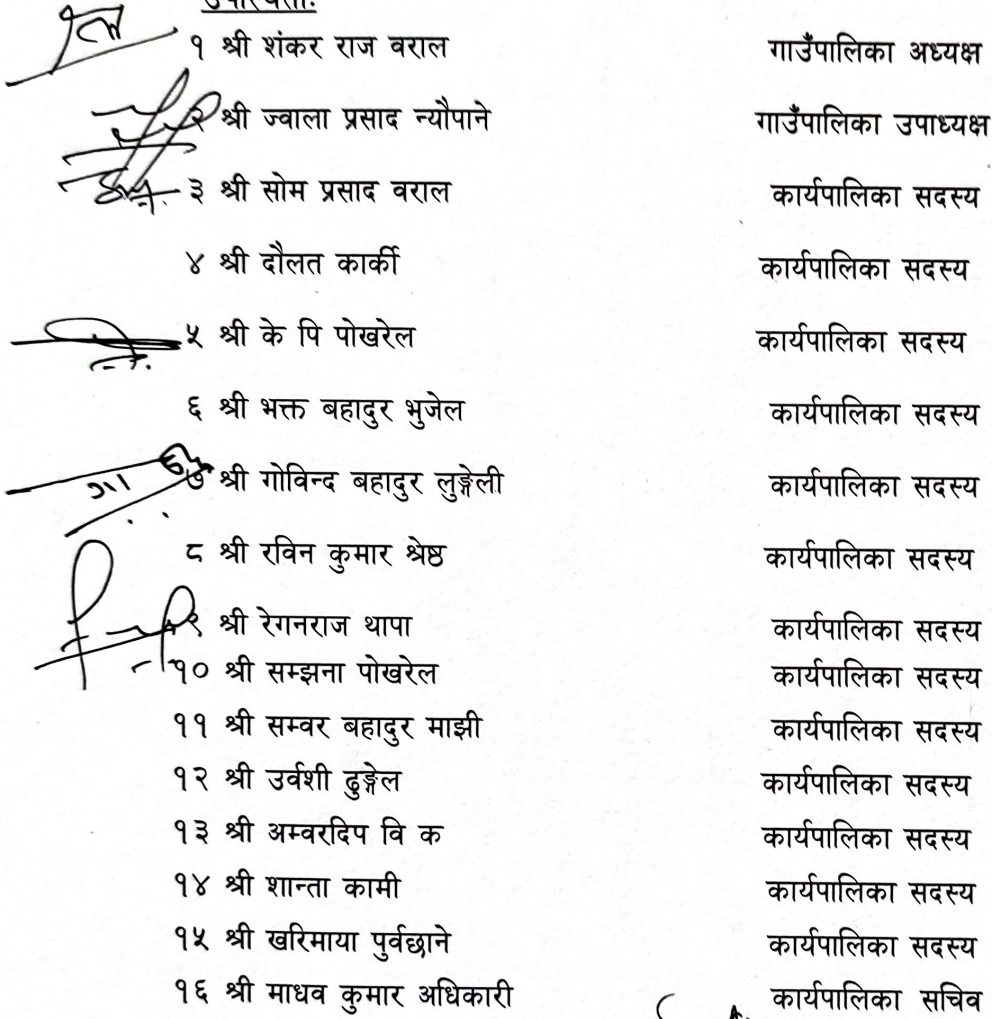 उपस्थिती:
१ श्री शंकर राज वराल गाउँपालिका अध्यक्ष
२ श्री ज्वाला प्रसाद न्यौपाने गाउँपालिका उपाध्यक्ष
३ श्री सोम प्रसाद वराल कार्यपालिका सदस्य
४ श्री दौलत कार्की कार्यपालिका सदस्य
५ श्री के पि पोखरेल कार्यपालिका सदस्य
६ श्री भक्त बहादुर भुजेल कार्यपालिका सदस्य
७ श्री गोविन्द बहादुर लुङ्गेली कार्यपालिका सदस्य
८ श्री रविन कुमार श्रेष्ठ कार्यपालिका सदस्य
९ श्री रेगनराज थापा कार्यपालिका सदस्य
१० श्री सम्झना पोखरेल कार्यपालिका सदस्य
११ श्री सम्वर बहादुर माझी कार्यपालिका सदस्य
१२ श्री उर्वशी ढुङ्गेल कार्यपालिका सदस्य
१३ श्री अम्वरदिप वि क कार्यपालिका सदस्य
१४ श्री शान्ता कामी कार्यपालिका सदस्य
१५ श्री खरिमाया पुर्वछाने कार्यपालिका सदस्य
१६ श्री माधव कुमार अधिकारी कार्यपालिका सचिव